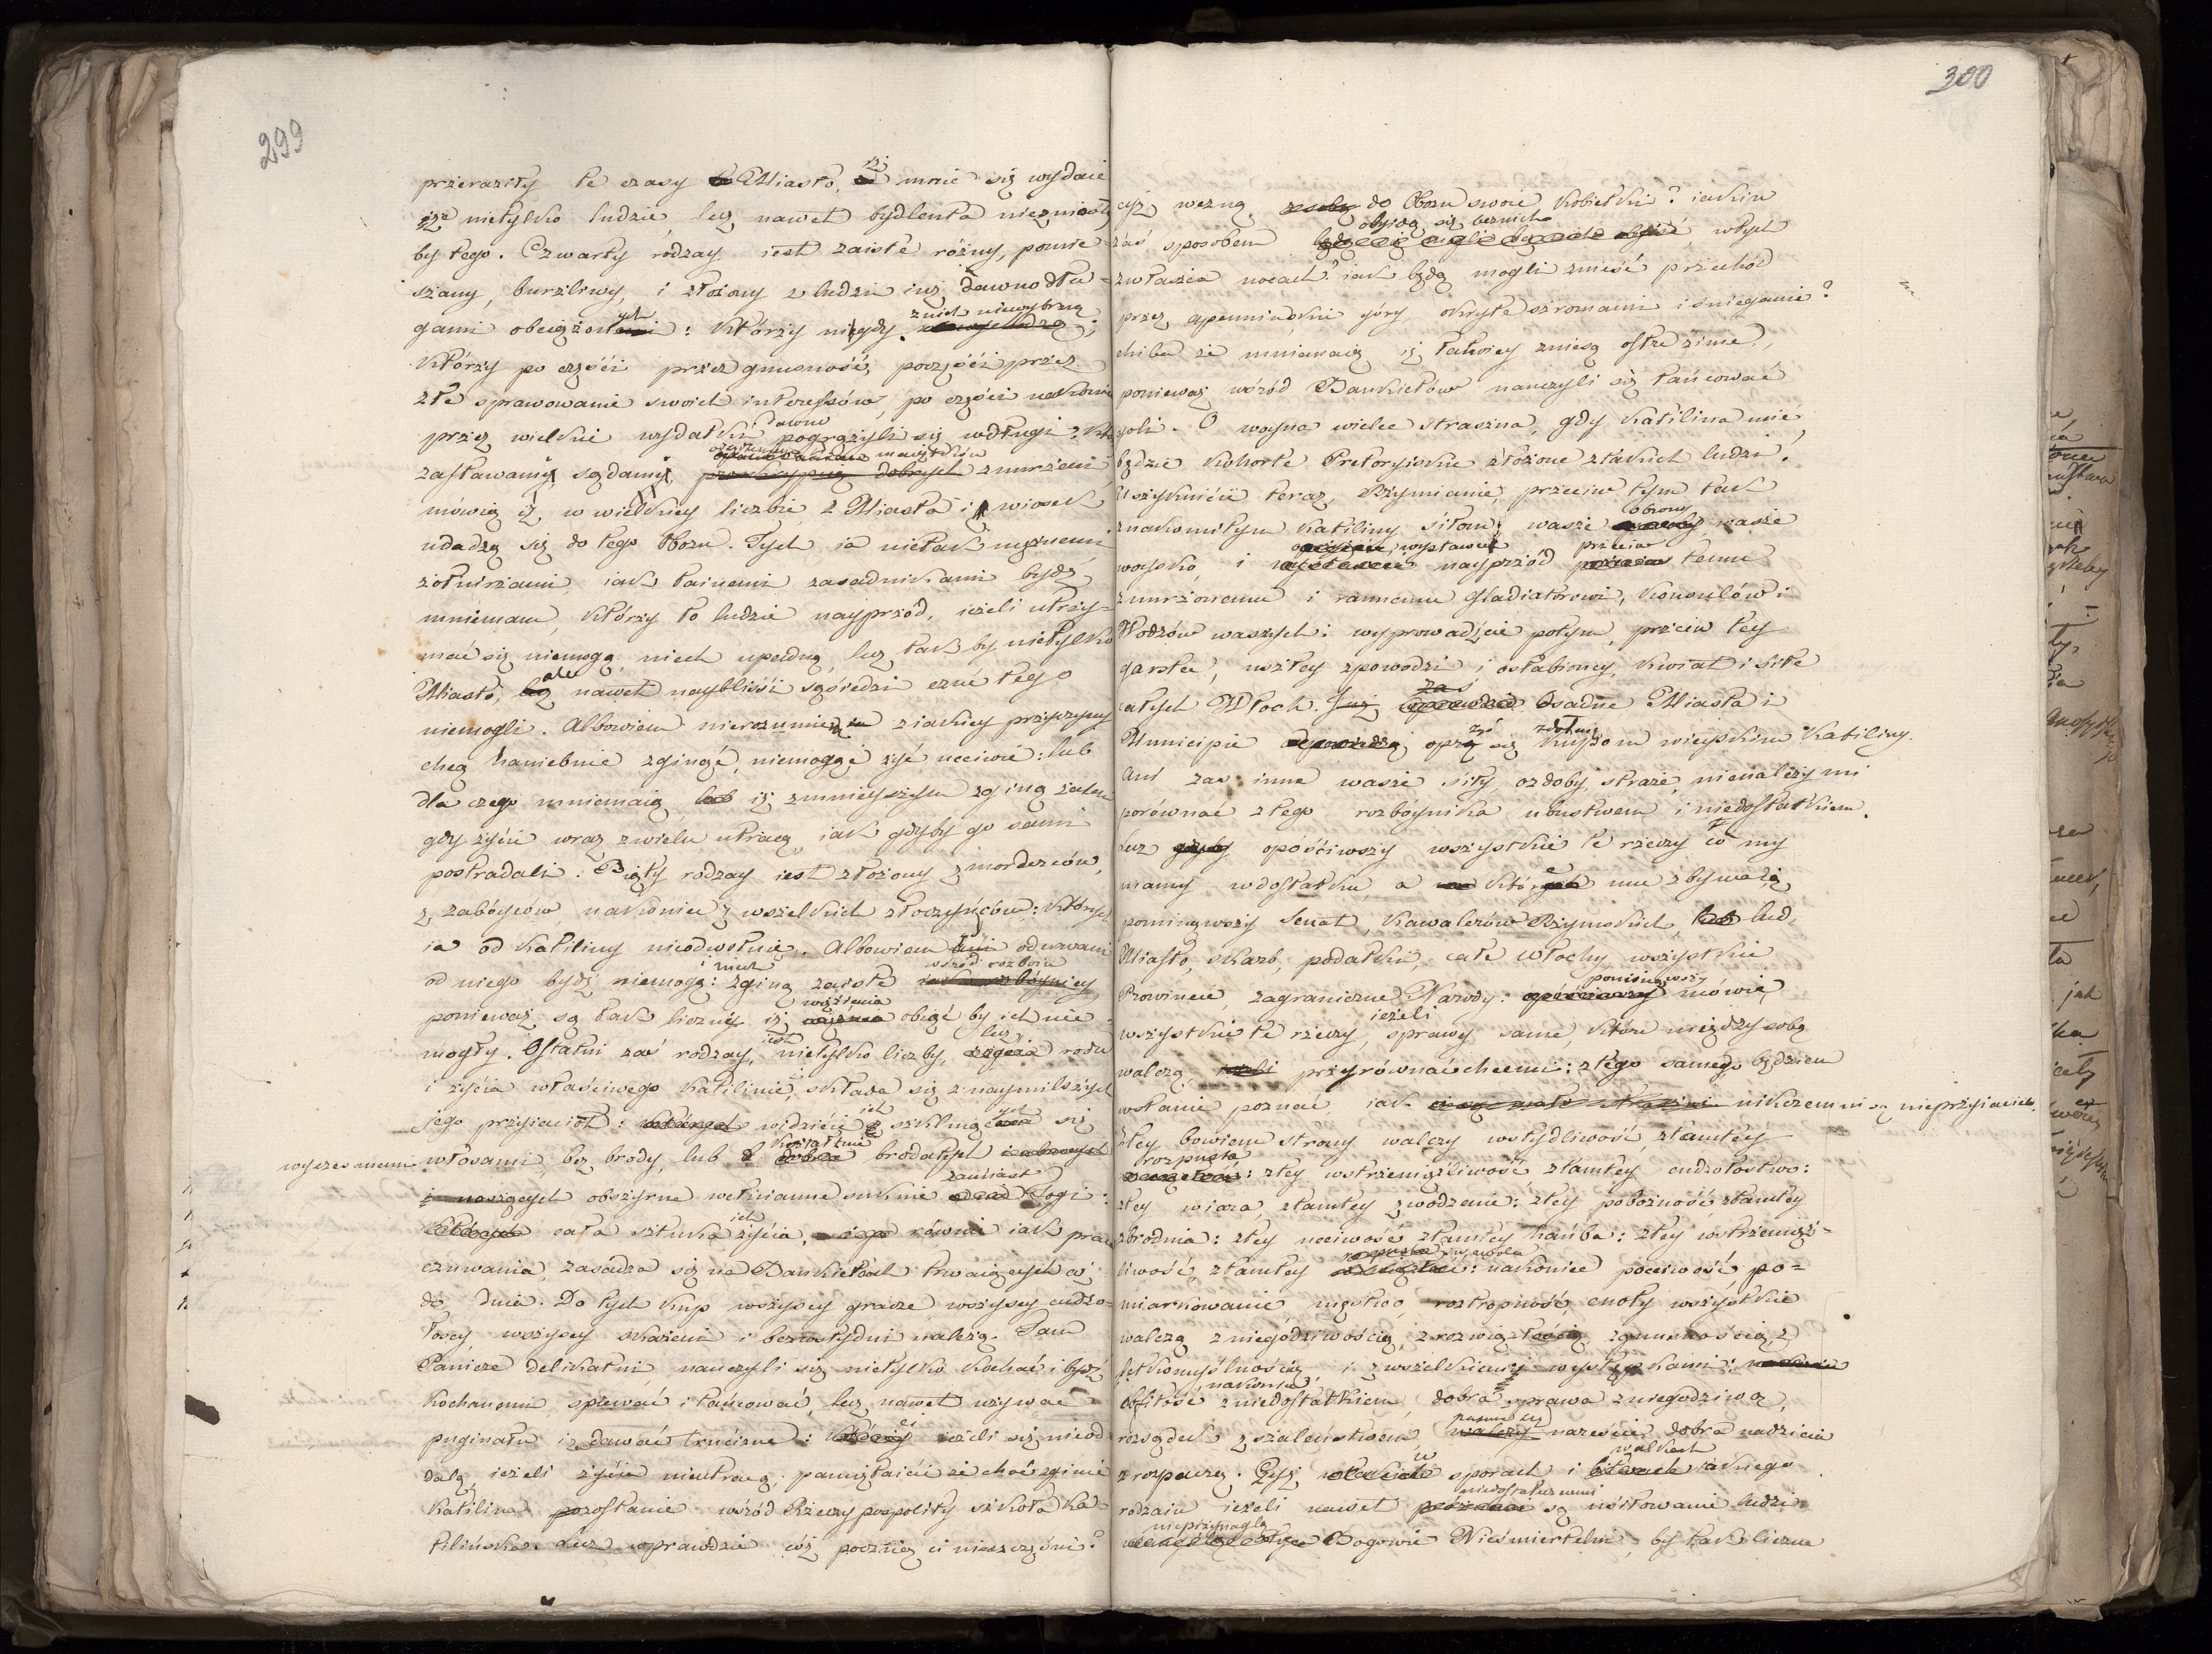 299
przeraziły te czasy Miasto, iż mnie się wydaie
iże nietylko ludzie lecz nawet bydlenta nieznios
by tego. Czwarty rodzay iest zaiste różny, pomie-
szany, burzliwy, i złożony z ludzi iuż dawno dłu-
gami obciążonych: którzy nigdy z nich niewybrną;
którzy po części przez gnusność, poczęści przez
złe sprawowanie swoich interessów, po części nakoniec
przez wielkie wydatki dawno pogrążyli się w długi:
zastawami, sądami, maiątków znurzeni
mówią iż w wielkiey liczbie z Miasta i wiosek
udadzą się do tego Obozu. Tych ia nietak mężnemi
żołnirzami, iak tainemi zasadnikami bydź
mniemam, którzy to ludzie nayprzód, ieżeli utrzy-
mać się niemogą, niech upadną, lecz tak by nietylko
Miasto, ale nawet naybliżsi sąsiedzi czuć tego
niemogli. Albowiem nierozumiem z iakiey przyczyny
chcą haniebnie zginąć, niemogąc żyć uczciwie: lub
dla czego mniemaią iż z mnieyszym zginą żalem
gdy życie wraz z wielu utracą, iak gdyby go sami
postradali. Piąty rodzay iest złożony z mordercow,
z zabóyców, nakoniec z wszelkich złoczyńców: których
ia od Katiliny nieodwołuię. Albowiem oderwani
od niego bydź niemogą: i niech zginą zaiste wśród rozboiu
ponieważ są tak liczni iż więzienia obiąć by ich nie-
mogły. Ostatni zaś rodzay, iest nietylko liczby, lecz rodu
i życia właściwego Katilinie, składa się z naymilszych
jego przyiaciół: widzicie ich szklniących się
wyczesanemi włosami, bez brody, lub z kształtnie brodatych
obszyrne wełnianne suknie zamiast Togi:
cała sztuka ich życia, równie iak praca
czuwania, zasadza się na Bankietach trwaiących aż
do dnia. Do tych kup wszyscy gracze wszyscy cudzo-
łożcy wszyscy skażeni i bezwstydni należą. Tam
Panicze delikatni, nauczyli się nietylko kochać i bydź
kochanemi, spiewać i tańcować, lecz nawet używać
puginału i zdawać trucizne: ci ieżeli się nieod-
dalą, ieżeli życie nieutracą, pamiętaicie że choć zginie
Katilina pozostanie wśród Rzeczypospolity szkoła Ka-
tilińska. Lecz wprawdzie cóż poczną ci nieszczęśni?
300
czyż wezną do Obozu swoie kobietki? iakim
zaś sposobem obyidą się bez nich, w tych
zwłaszcza nocach? iak będą mogli znieść przechód
przez apenninskie góry okryte szronami i śniegami?
chiba że mniemaią iż łatwiey zniosą ostre zime?,
ponieważ wśród Bankietów nauczyli się tańcować
goli. O wojna wielce straszna, gdy Katilina mieć
będzie kohorte Pretoryiskie złożone z takich ludzi.
Uszykuiycie teraz, Rzymianie, przeciw tym tak
znakomitym Katiliny siłom, wasze obrony wasze
woysko, i wystawcie nayprzód przeciw temu
znurzonemu i rannemu Gladiatorowi, Konsulów i
Wodzów waszych: wyprowadźcie potym, przeciw tey
garstce, uszłey z powodzi i osłabioney, kwiat i siłe
całych Włoch. zaś Osadne Miasta i
Municipie oprzyć się zdołaią kupom wieyskim Katiliny.
Ani zas inne wasze siły, ozdoby, straże, nienależy mi
porównać z tego rozbóynika ubustwem i niedostatkiem.
Lecz opóściwszy wszystkie te rzeczy co my
mamy w dostatku, a które mu zbywaią,
pominąwszy Senat, Kawalerów Rzymskich, lud,
Miasto, skarb, podatki, całe Włochy, wszystkie
Prowincie, zagraniczne Narody: pominąwszy mówię,
wszystkie te rzeczy, ieżeli sprawy same, które między sobą
walczą przyrównać chcemi: z tego samego będziem
w stanie poznać, iak nikczemni są nieprzyiaciele.
Z tey bowiem strony walczy wstydliwość, z tamtey
rozpusta: z tey wstrzemięźliwość, z tamtey cudzołostwo:
z tey wiara, z tamtey zwodzenie: z tey pobożność z tamtey
zbrodnia: z tey uczciwość z tamtey hańba: z tey wstrzemięź-
liwość, z tamtey swawola: nakoniec poczciwość po-
miarkowanie męstwo, roztropność, cnoty wszystkie
walczą z niegodziwością, z rozwięzłością, z gnusnością, z
letkomyślnością, i z wszelkiemi występkami:
nakoniec obfitość z niedostatkiem, dobra sprawa z niegodziwą,
rozsądek z szaleństwem, nareście dobra nadzieia
z rozpaczą. Czyż w sporach i walkach takiego
rodzaiu ieżeli nawet niedostatecznemi są usiłowania ludzi
nieprzynaglą Bogowie Nieśmiertelni, by tak liczne